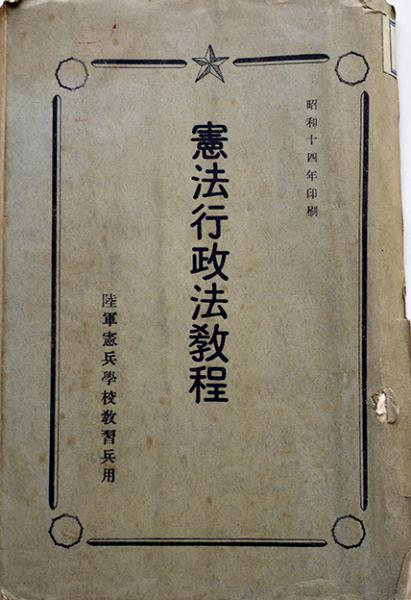 昭和十四年印刷
憲法行政法敎程
陸軍憲兵學校敎習兵用